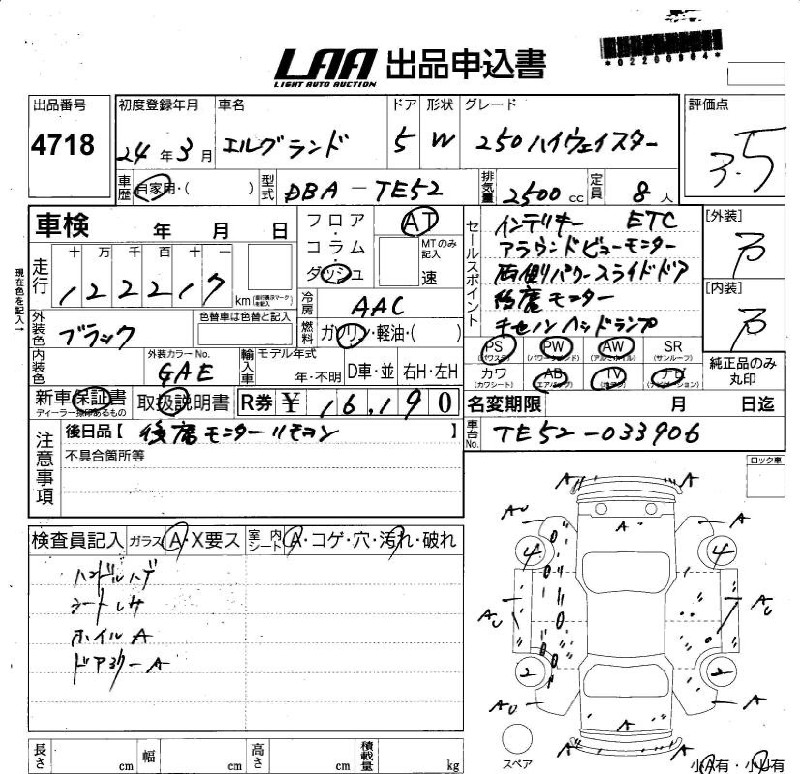 *02200944*
LAA 出品申込書
LIGHT AUTO AUCTION
出品番号 初度登録年月 車名 ドア 形状 グレード 評価点
4718 24年3月 エルグランド 5 W 250ハイウェイスター 3.5
車歴 自家用・( ) 型式 DBA-TE52 排気量 2500cc 定員 8人
車検 年 月 日 フロア・コラム・ダッシュ AT MTのみ記入 速
セールスポイント インテリキー ETC
アラウンドビューモニター
両側パワースライドドア
後席モニター
キセノンヘッドランプ
[外装]
[内装]
現在色を記入→
走行 十 万 千 百 十 一
122217 km
冷房 AAC
外装色 ブラック 色替車は色替と記入 燃料 ガソリン・軽油・( )
内装色 外装カラーNo. GAE 輸入車 モデル年式 年・不明 D車・並 右H・左H
PS (パワステ) PW (パワーウインド) AW (アルミホイル) SR (サンルーフ)
カワ (カワシート) AB (エアバッグ) TV ナビ (ナビゲーション) 純正品のみ丸印
新車保証書 取扱説明書 R券 ¥ 16,190 名変期限 月 日迄
車台No. TE52-033906
注意事項 後日品【 後席モニターリモコン 】
不具合箇所等
ロック車
検査員記入 ガラス A・X要ス 室内シート A・コゲ・穴・汚れ・破れ
ハンドルハゲ
ホイルA
A A
AU A A
4 4
AU AU
2 2
AU A A
A A
スペア
小A有・小U有
長さ cm 幅 cm 高さ cm 積載量 kg